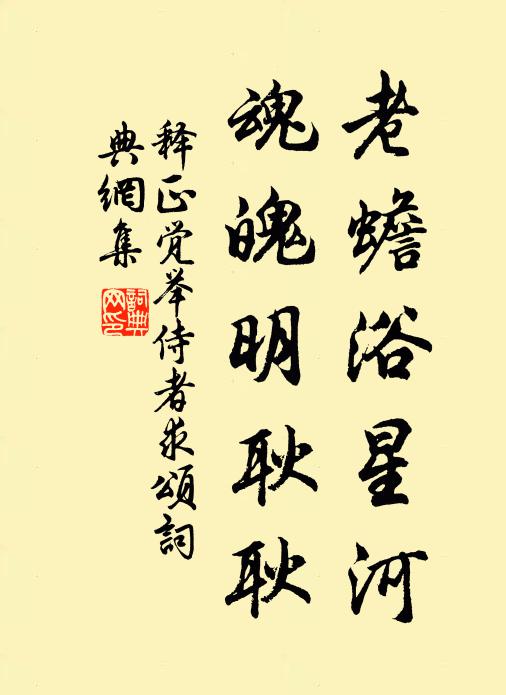 老蟾浴星河
魂魄明耿耿
释正觉举侍者求颂詞
典網集
詞典
网印